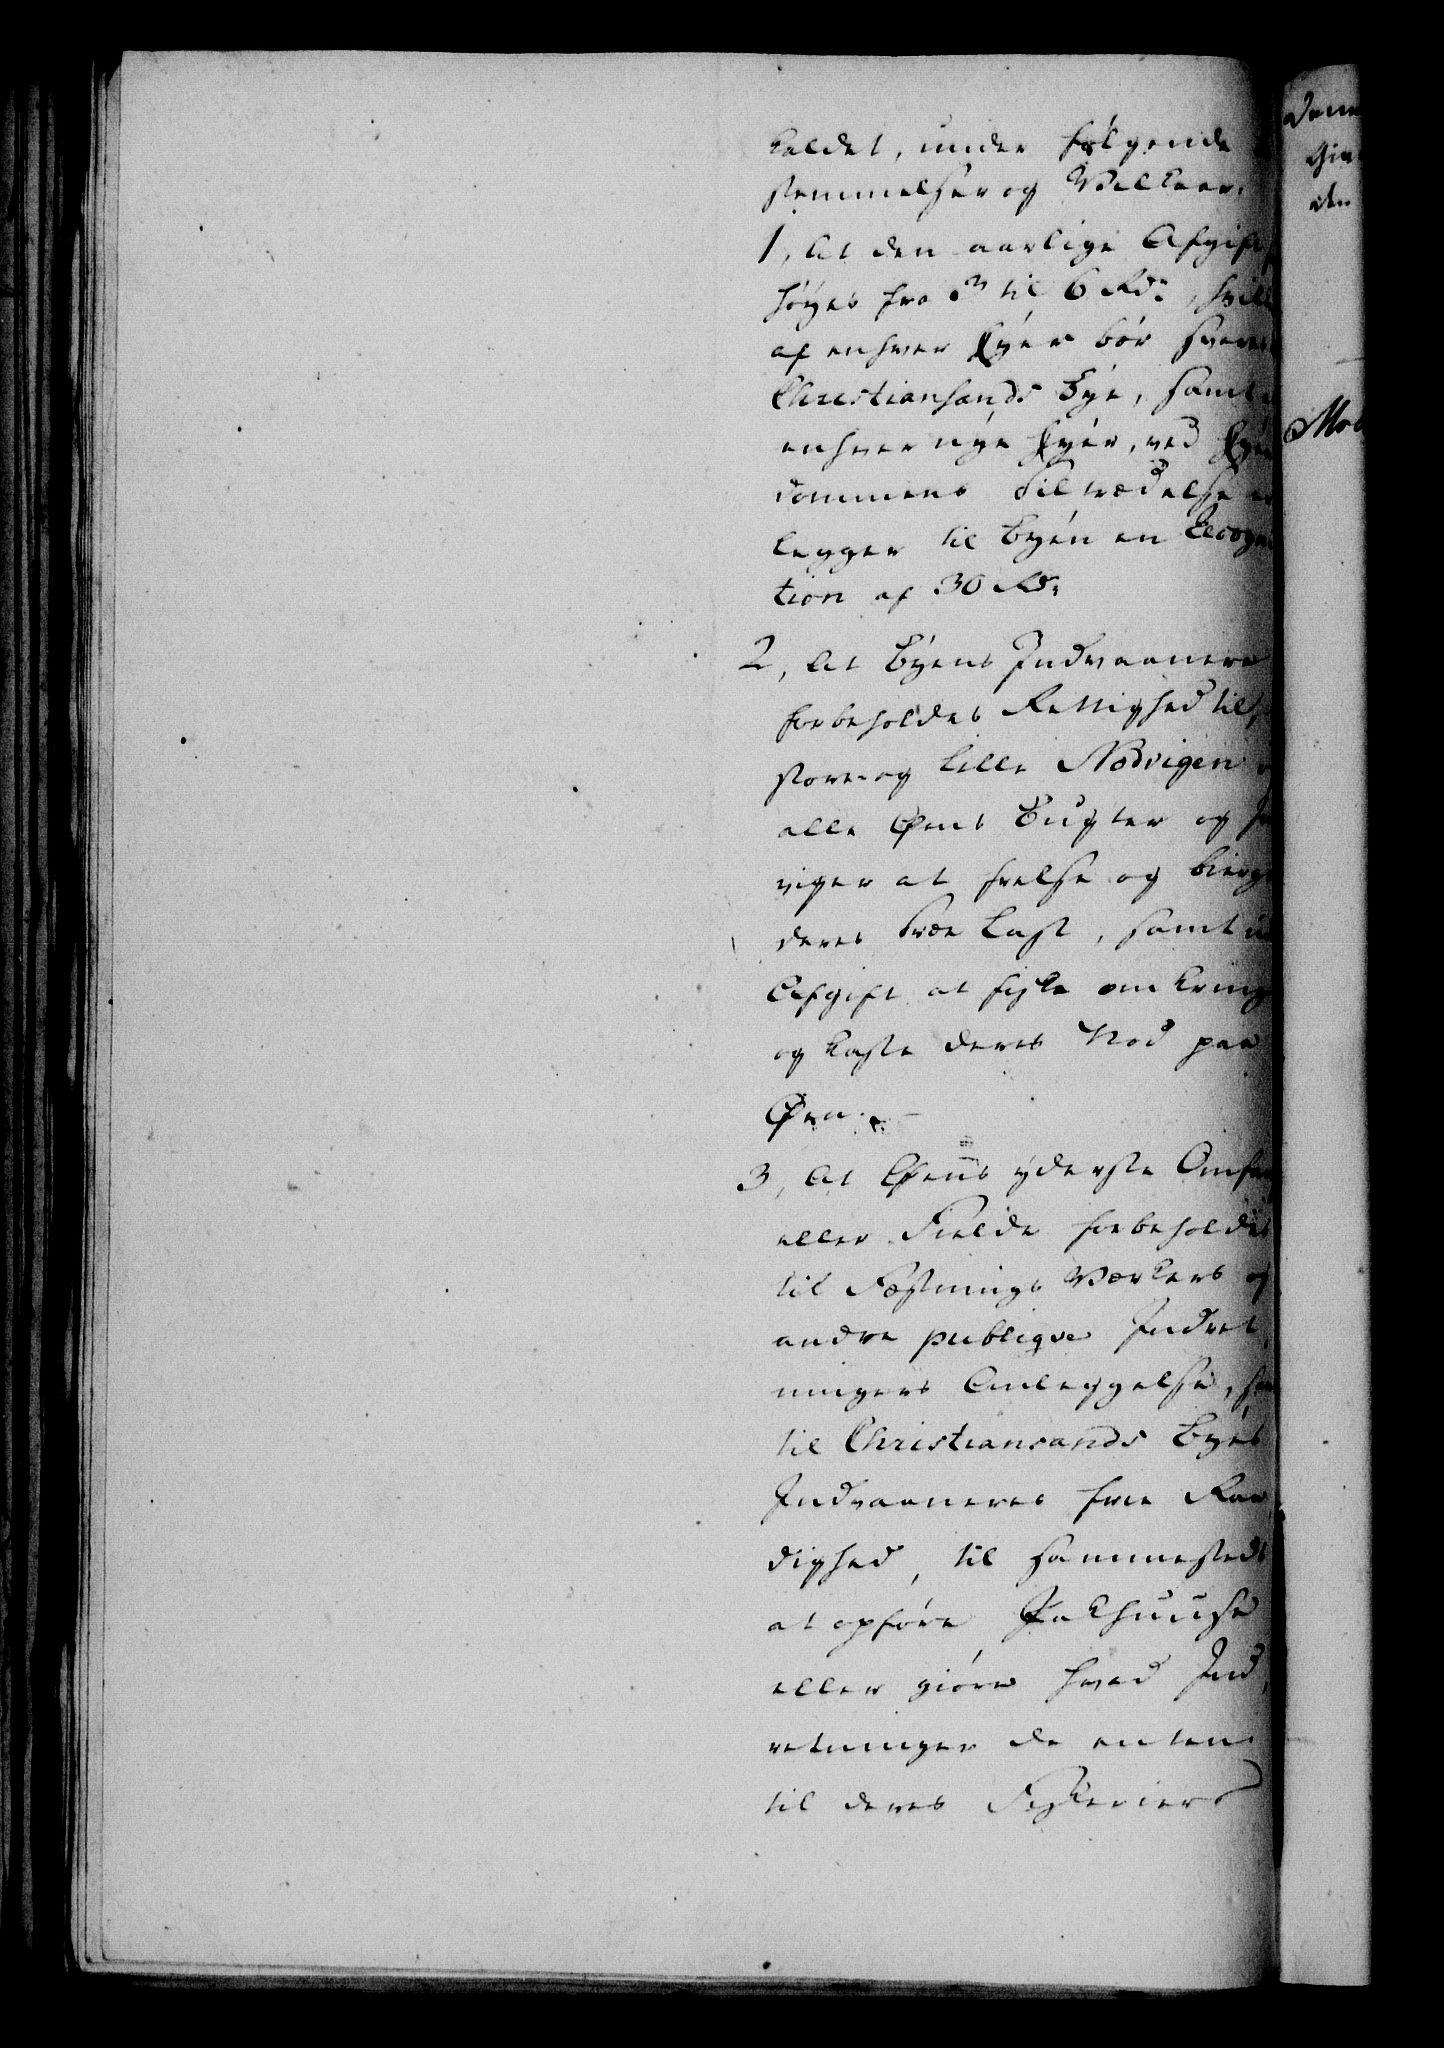 kaldet, under følgende
stemmelser og Vilkaar.
1, At den aarlige Afgift
høyes fra 3 til 6 Rd:, hvil
af enhver Eyer bør svares
Christiansands Bye, samt
enhver nye Eyer, ved Eyen
dommens Tiltrædelse er
legger til Byen en Recogni
tion af 30 Rd:
2, At Byens Indvaanere
forbeholdes Rettighed til,
store og lille Nodvigen
alle Øens Bugter og
viger at frelse og bierge
deres Træ Last, samt
Afgift at fiske omkring
og kaste deres Nod paa
Øen.
3, At Øens yderste
eller Fielde forbeholdes
til Fæstnings Værkers og
andre publiqve Indret
ningers Anleggelse,
til Christiansands Byes
Indvaaneres frie Raa
dighed, til sammesteds
at opføre Pakhuuse
eller giøre hvad Ind
retninger de enten
til deres Fiskerier
Mod